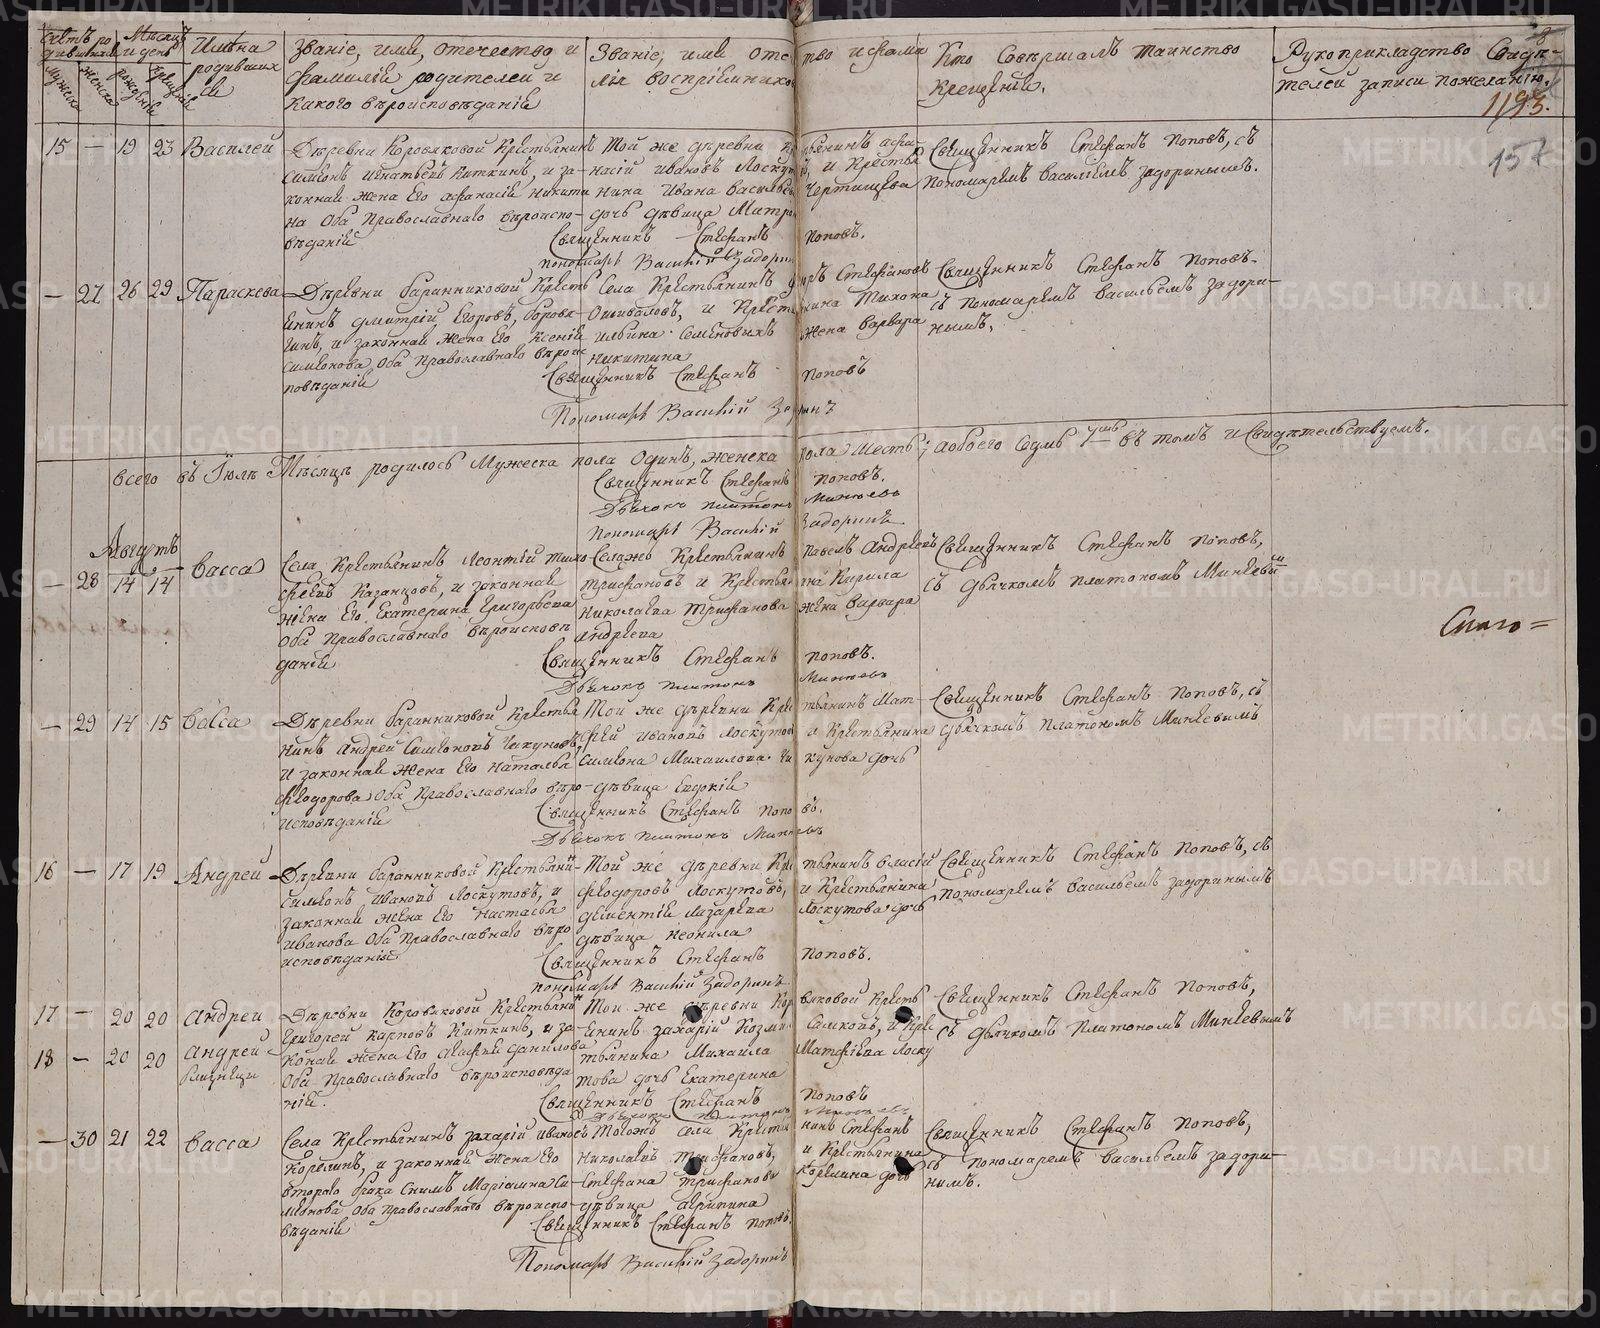 Счетъ родившихся
Мѣсяцъ и день
Имѣна родившихся
Званіе, имя, отечество и фамилія родителей и какого вѣроисповѣданія
Званіе, имя отечество и фамилія воспріемниковъ
Кто совершалъ таинство крещенія.
Рукоприкладство свидѣтелей записи по желанію.
мужеска
женска
рожденія
крещенія
1193.
157
15 — 19 23 Василей
Деревни Коровяковой крестьянинъ
Симіонъ Игнатьевъ Киткинъ, и за-
конная жена его Афанасія Никити
на оба православнаго вѣроиспо-
вѣданія
Той же деревни
Ивановъ Лоскут
Ивана Василье
дочь дѣвица Матр
Чертищева
Священникъ Стефанъ Поповъ, съ
Пономаремъ Василіемъ Задоринымъ.
Священникъ Стефанъ Поповъ.
Пономарь Василій Задорин
— 27 26 29 Параскева
Деревни Баранниковой кресть
янинъ Дмитрій Егоровъ,
и законная жена его Ксенія
Симіонова оба православнаго вѣроис
повѣданія
Села крестьянинъ
Стефановъ
Ошиваловъ, и крестьянина Тихона
жена Варвара
Никитина
Священникъ Стефанъ Поповъ
съ Пономаремъ Васильемъ Задори-
нымъ.
Священникъ Стефанъ Поповъ
Пономарь Василій Задоринъ
Всего въ Іюлѣ мѣсяцѣ родилось мужеска пола одинъ, женска пола шесть; а обоего седмь душъ въ томъ и свидѣтельствуемъ.
Священникъ Стефанъ Поповъ.
Дьячокъ Платонъ Минѣевъ
Пономарь Василій Задоринъ
Августъ
— 28 14 14 Васса
Села крестьянинъ Леонтій Тимо
феевъ Казанцовъ, и законная
жена его Екатерина Григорьева
оба православнаго вѣроисповѣ
данія
Села жъ крестьянинъ Павелъ Андреевъ
Трифановъ и крестьянина Кирила
Николаева Трифанова жена Варвара
Андреева
Священникъ Стефанъ Поповъ,
съ дьячкомъ Платономъ Минѣевы
Священникъ Стефанъ Поповъ.
Дьячокъ Платонъ Минѣевъ
— 29 14 15 Васса
Деревни Баранниковой крестья
нинъ Андрей Симіоновъ Чикуновъ,
и законная жена его Наталья
Феодорова оба православнаго вѣро-
исповѣданія
Той же деревни крестьянинъ Мат-
фей Ивановъ Лоскутовъ и крестьянина
Симіона Михаилова Чикунова дочь
дѣвица Евдокія
Священникъ Стефанъ Поповъ, съ
дьячкомъ Платономъ Минѣевымъ
Священникъ Стефанъ Поповъ.
Дьячокъ Платонъ Минѣевъ
16 — 17 19 Андрей
Деревни Баранниковой крестьяни-
Симіонъ Ивановъ Лоскутовъ, и
законная жена его Настасья
Иванова оба православнаго вѣро
исповѣданія
Той же деревни крестьянинъ Власій
Феодоровъ Лоскутовъ, и крестьянина
Дементія Лазарева Лоскутова дочь
дѣвица Неонила
Священникъ Стефанъ Поповъ, съ
Пономаремъ Васильемъ Задоринымъ
Священникъ Стефанъ Поповъ.
Пономарь Василій Задоринъ
17 — 20 20 Андрей
18 — 20 20 Андрей
близнецы
Деревни Коровяковой крестьяни
Григорей Карповъ Киткинъ, и за
конная жена его Данилова
оба православнаго вѣроисповѣда
нія.
Той же деревни Коровяковой кресть
янинъ Захарій Козми и кре
стьянина Михаила Матфіева Лоску
това дочь Екатерина
Священникъ Стефанъ Поповъ,
съ дьячкомъ Платономъ Минѣевымъ
Священникъ Стефанъ Поповъ
Дьячокъ Платонъ Минѣевъ
— 30 21 22 Васса
Села крестьянинъ Захарій Ивановъ
Корелинъ, и законная жена его
втораго брака съ нимъ Маріамна Си-
міонова оба православнаго вѣроиспо-
вѣданія
Тогожъ села крестьянинъ Стефанъ
Николаевъ Трифановъ, и крестьянина
Стефана Трифанова Корелина дочь
дѣвица Агрипина
Священникъ Стефанъ Поповъ,
съ Пономаремъ Васильемъ Задори-
нымъ.
Священникъ Стефанъ Поповъ.
Пономарь Василій Задоринъ
METRIKI.GASO-URAL.RU